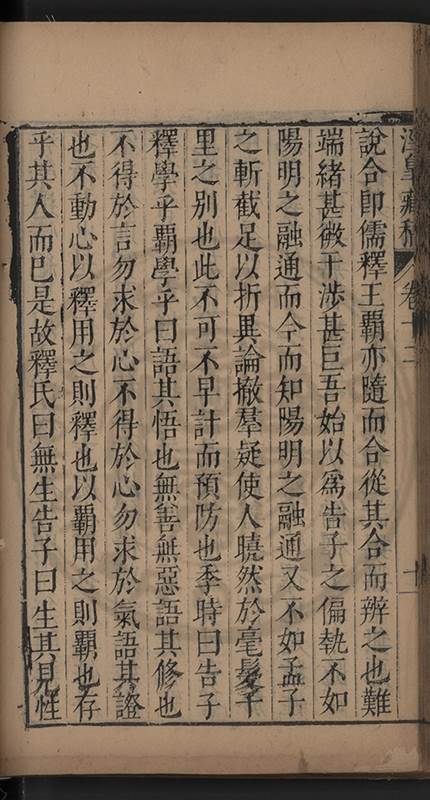 涇臯藏稿 卷十二 十一
說合即儒釋王霸亦隨而合從其合而辨之也難
端緒甚微干涉甚巨吾始以為告子之偏執不如
陽明之融通而今而知陽明之融通又不如孟子
之斬截足以折異論撤羣疑使人曉然於毫髮千
里之別也此不可不早計而預防也季時曰告子
釋學乎霸學乎曰語其悟也無善無惡語其修也
不得於言勿求於心不得於心勿求於氣語其證
也不動心以釋用之則釋也以霸用之則霸也存
乎其人而巳是故釋氏曰無生告子曰生其見性